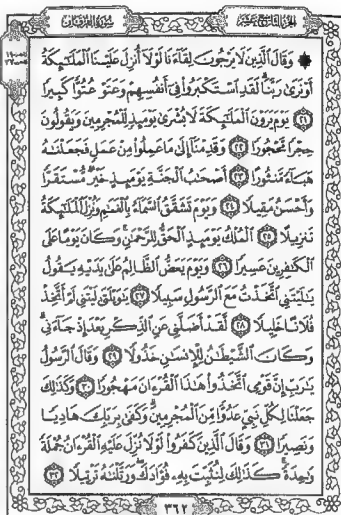 سُورَةُ الفُرْقَانِ
الجُزْءُ التَّاسِعَ عَشَرَ
۞ وَقَالَ الَّذِينَ لَا يَرْجُونَ لِقَاءَنَا لَوْلَا أُنزِلَ عَلَيْنَا الْمَلَٰئِكَةُ
أَوْ نَرَىٰ رَبَّنَا لَقَدِ اسْتَكْبَرُوا فِي أَنفُسِهِمْ وَعَتَوْ عُتُوًّا كَبِيرًا
﴿٢١﴾ يَوْمَ يَرَوْنَ الْمَلَٰئِكَةَ لَا بُشْرَىٰ يَوْمَئِذٍ لِّلْمُجْرِمِينَ وَيَقُولُونَ
حِجْرًا مَّحْجُورًا ﴿٢٢﴾ وَقَدِمْنَا إِلَىٰ مَا عَمِلُوا مِنْ عَمَلٍ فَجَعَلْنَٰهُ
هَبَاءً مَّنثُورًا ﴿٢٣﴾ أَصْحَٰبُ الْجَنَّةِ يَوْمَئِذٍ خَيْرٌ مُّسْتَقَرًّا
وَأَحْسَنُ مَقِيلًا ﴿٢٤﴾ وَيَوْمَ تَشَقَّقُ السَّمَاءُ بِالْغَمَٰمِ وَنُزِّلَ الْمَلَٰئِكَةُ
تَنزِيلًا ﴿٢٥﴾ الْمُلْكُ يَوْمَئِذٍ الْحَقُّ لِلرَّحْمَٰنِ وَكَانَ يَوْمًا عَلَى
الْكَٰفِرِينَ عَسِيرًا ﴿٢٦﴾ وَيَوْمَ يَعَضُّ الظَّالِمُ عَلَىٰ يَدَيْهِ يَقُولُ
يَٰلَيْتَنِي اتَّخَذْتُ مَعَ الرَّسُولِ سَبِيلًا ﴿٢٧﴾ يَٰوَيْلَتَىٰ لَيْتَنِي لَمْ أَتَّخِذْ
فُلَانًا خَلِيلًا ﴿٢٨﴾ لَّقَدْ أَضَلَّنِي عَنِ الذِّكْرِ بَعْدَ إِذْ جَاءَنِي
وَكَانَ الشَّيْطَٰنُ لِلْإِنسَٰنِ خَذُولًا ﴿٢٩﴾ وَقَالَ الرَّسُولُ
يَٰرَبِّ إِنَّ قَوْمِي اتَّخَذُوا هَٰذَا الْقُرْءَانَ مَهْجُورًا ﴿٣٠﴾ وَكَذَٰلِكَ
جَعَلْنَا لِكُلِّ نَبِيٍّ عَدُوًّا مِّنَ الْمُجْرِمِينَ وَكَفَىٰ بِرَبِّكَ هَادِيًا
وَنَصِيرًا ﴿٣١﴾ وَقَالَ الَّذِينَ كَفَرُوا لَوْلَا نُزِّلَ عَلَيْهِ الْقُرْءَانُ جُمْلَةً
وَٰحِدَةً كَذَٰلِكَ لِنُثَبِّتَ بِهِ فُؤَادَكَ وَرَتَّلْنَٰهُ تَرْتِيلًا ﴿٣٢﴾
٣٦٢